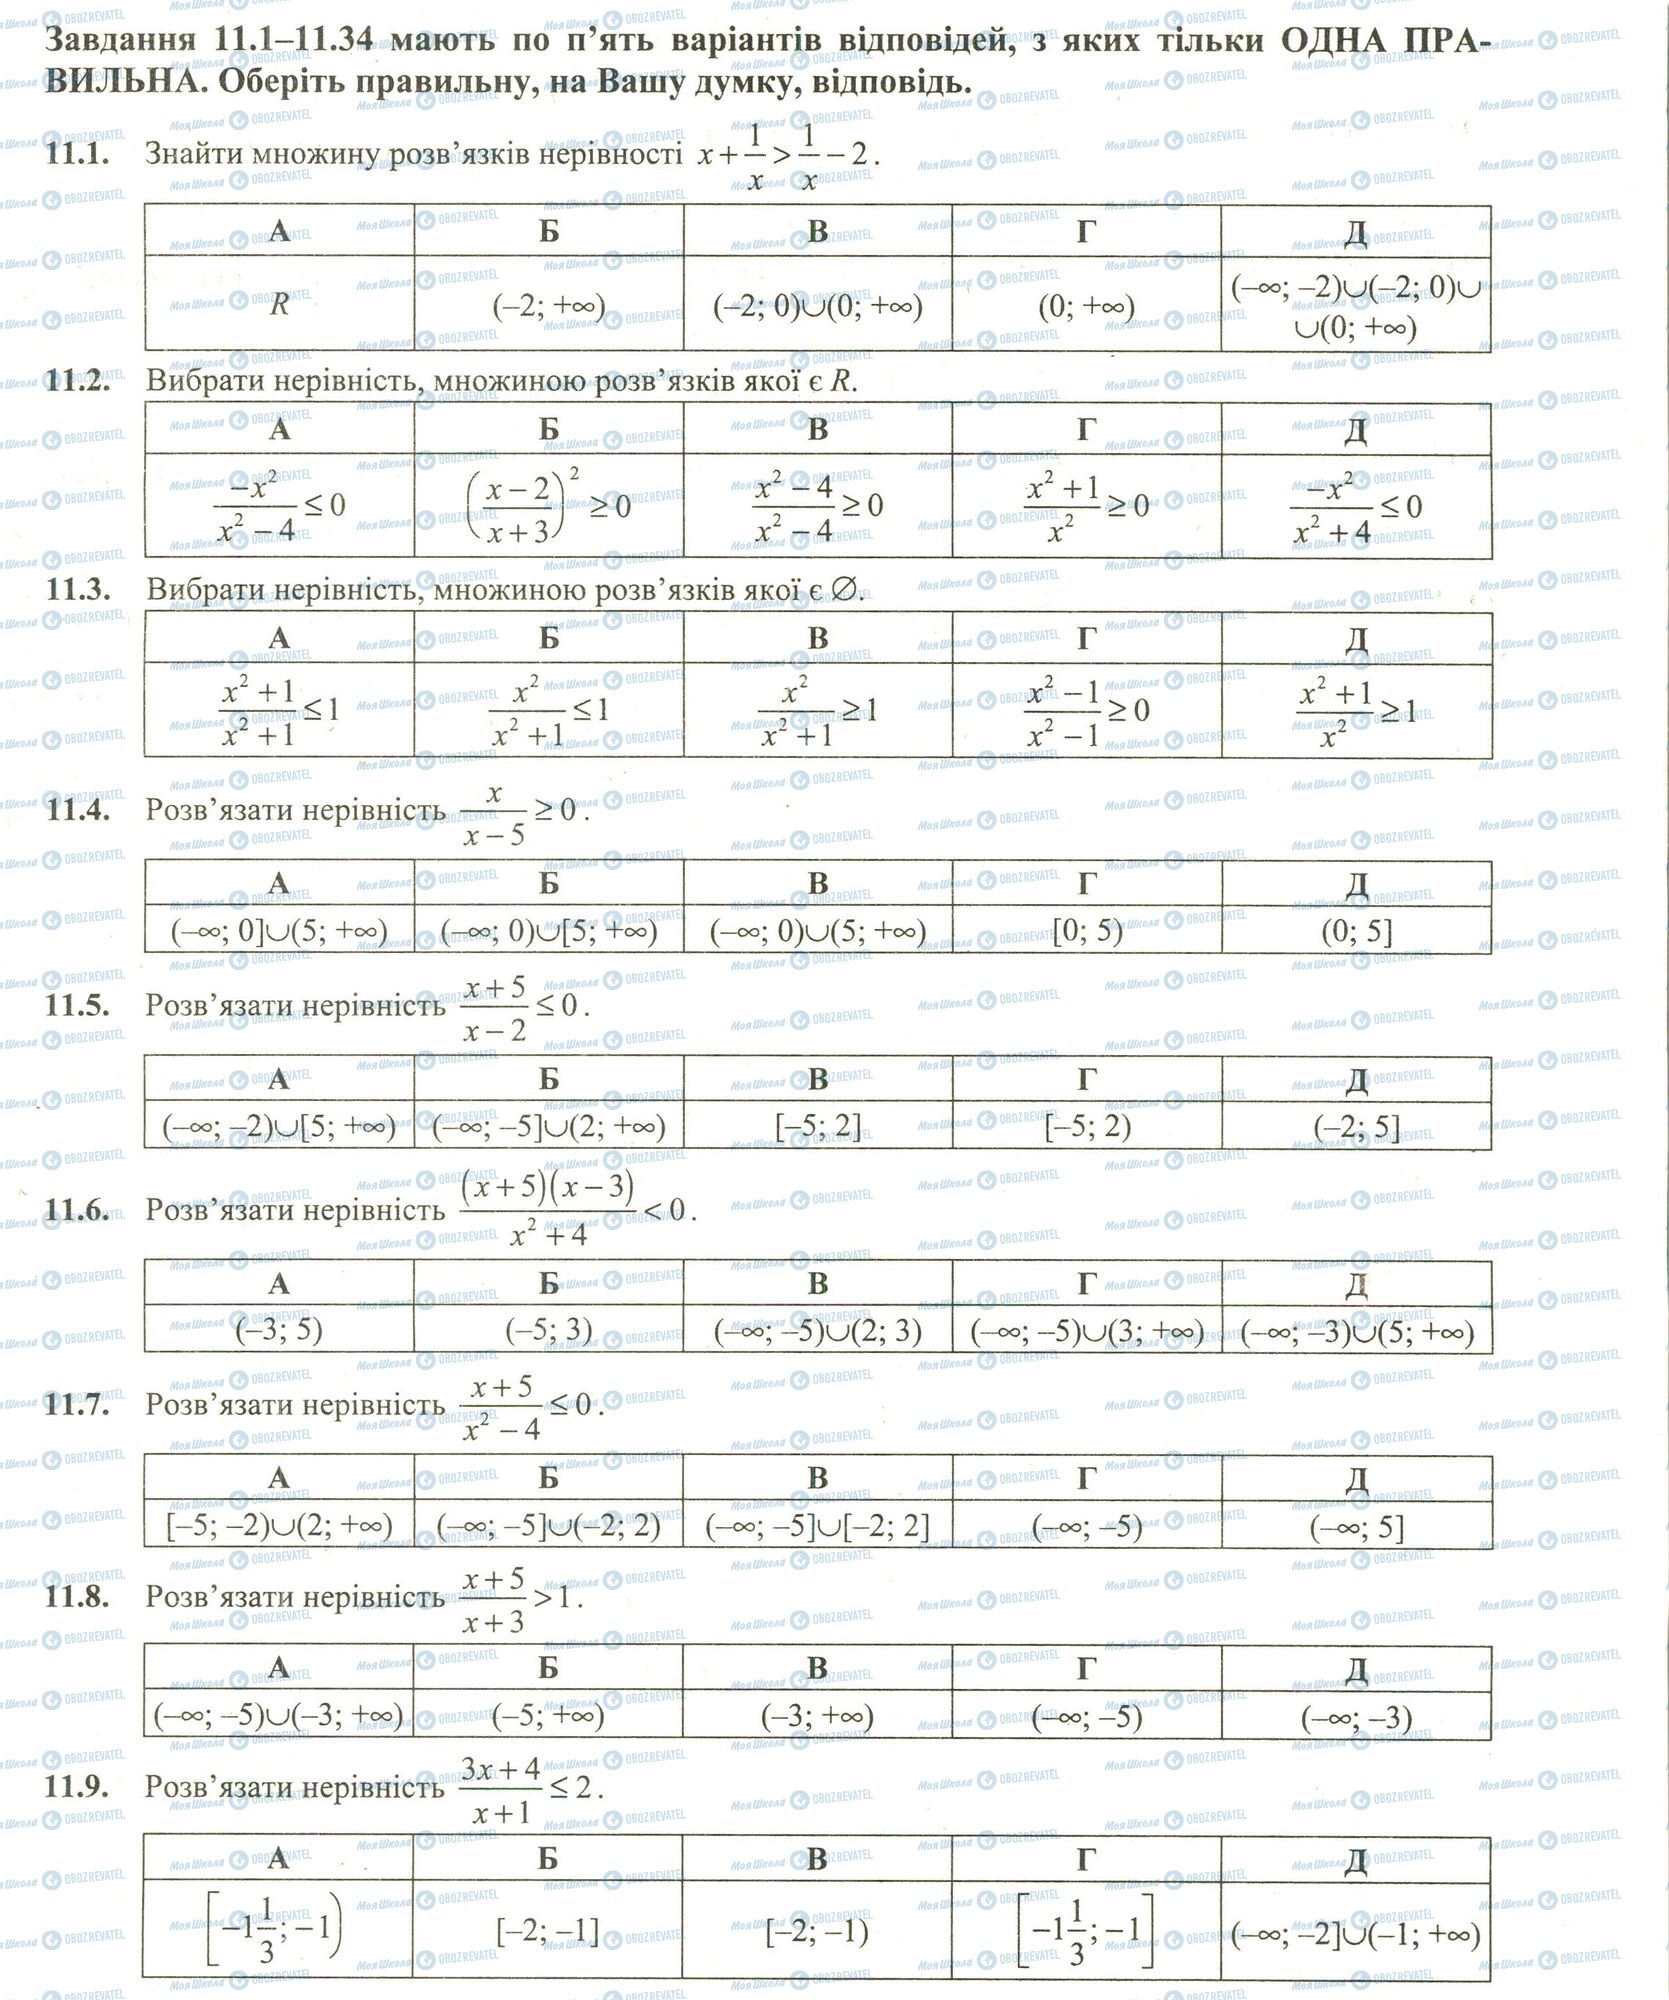 Завдання 11.1–11.34 мають по п’ять варіантів відповідей, з яких тільки ОДНА ПРА-
ВИЛЬНА. Оберіть правильну, на Вашу думку, відповідь.
11.1. Знайти множину розв’язків нерівності x + 1/x > 1/x − 2.
А Б В Г Д
R (–2; +∞) (–2; 0)∪(0; +∞) (0; +∞) (–∞; –2)∪(–2; 0)∪
∪(0; +∞)
11.2. Вибрати нерівність, множиною розв’язків якої є R.
А Б В Г Д
−x²/(x² − 4) ≤ 0 ((x − 2)/(x + 3))² ≥ 0 (x² − 4)/(x² − 4) ≥ 0 (x² + 1)/x² ≥ 0 −x²/(x² + 4) ≤ 0
11.3. Вибрати нерівність, множиною розв’язків якої є ∅.
А Б В Г Д
(x² + 1)/(x² + 1) ≤ 1 x²/(x² + 1) ≤ 1 x²/(x² + 1) ≥ 1 (x² − 1)/(x² − 1) ≥ 0 (x² + 1)/x² ≥ 1
11.4. Розв’язати нерівність x/(x − 5) ≥ 0.
А Б В Г Д
(–∞; 0]∪(5; +∞) (–∞; 0)∪[5; +∞) (–∞; 0)∪(5; +∞) [0; 5) (0; 5]
11.5. Розв’язати нерівність (x + 5)/(x − 2) ≤ 0.
А Б В Г Д
(–∞; –2)∪[5; +∞) (–∞; –5]∪(2; +∞) [–5; 2] [–5; 2) (–2; 5]
11.6. Розв’язати нерівність (x + 5)(x − 3)/(x² + 4) < 0.
А Б В Г Д
(–3; 5) (–5; 3) (–∞; –5)∪(2; 3) (–∞; –5)∪(3; +∞) (–∞; –3)∪(5; +∞)
11.7. Розв’язати нерівність (x + 5)/(x² − 4) ≤ 0.
А Б В Г Д
[–5; –2)∪(2; +∞) (–∞; –5]∪(–2; 2) (–∞; –5]∪[–2; 2] (–∞; –5) (–∞; 5]
11.8. Розв’язати нерівність (x + 5)/(x + 3) > 1.
А Б В Г Д
(–∞; –5)∪(–3; +∞) (–5; +∞) (–3; +∞) (–∞; –5) (–∞; –3)
11.9. Розв’язати нерівність (3x + 4)/(x + 1) ≤ 2.
А Б В Г Д
[−1 1/3; −1) [–2; –1] [–2; –1) [−1 1/3; −1] (–∞; –2]∪(–1; +∞)
Моя Школа OBOZREVATEL